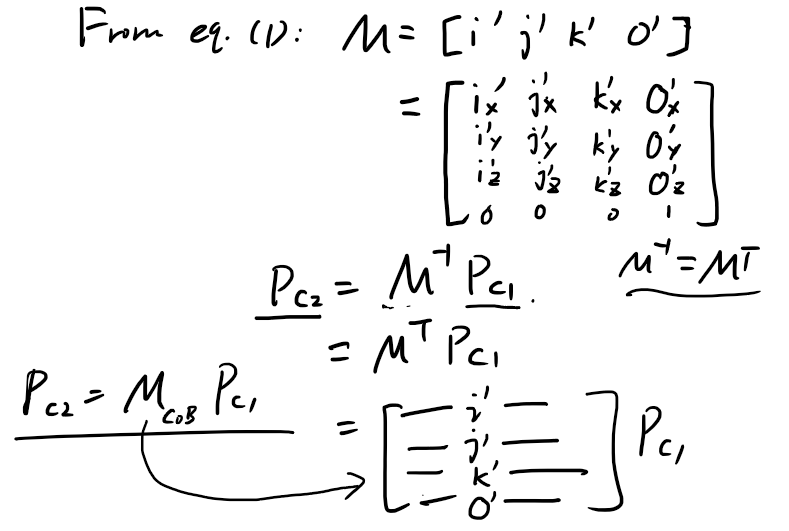 From eq. (1): M = [i' j' k' O']
= [ i'x j'x k'x O'x
i'y j'y k'y O'y
i'z j'z k'z O'z
0 0 0 1 ]
P_C2 = M^-1 P_C1 . M^-1 = M^T
= M^T P_C1
P_C2 = M_COB P_C1
= [ — i' —
— j' —
— k' —
— O' — ] P_C1